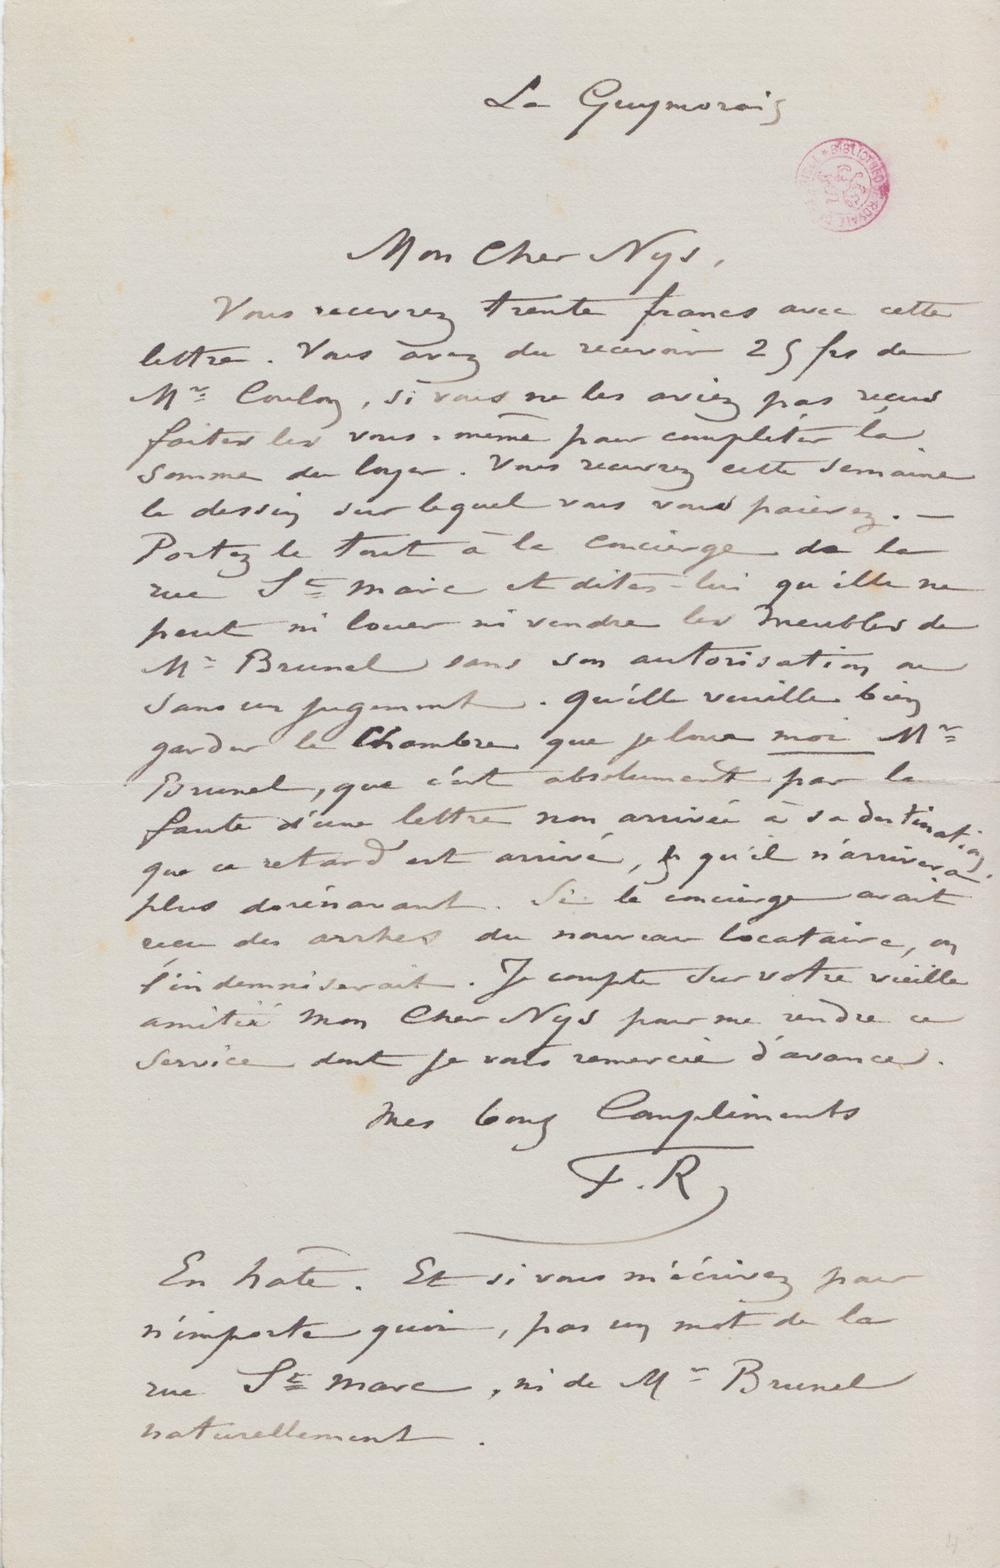 La Guymorais
Mon Cher Nys,
Vous recevrez trente francs avec cette
lettre. Vous avez du recevoir 25 frs de
Mr Coulon, si vous ne les aviez pas reçus
faites les vous-même pour compléter la
somme du loyer. Vous recevrez cette semaine
le dessin sur lequel vous vous paierez. —
Portez le tout à la concierge de la
rue St marc et dites-lui qu'elle ne
peut ni louer ni vendre les meubles de
Mr Brunel sans son autorisation ou
sans un jugement. qu'elle veuille bien
garder la Chambre que je loue moi Mr
Brunel, que c'est absolument par la
faute d'une lettre non arrivée à sa destination,
que ce retard est arrivé, qu'il n'arrivera
plus dorénavant. Si la concierge avait
reçu des arrhes du nouveau locataire, on
l'indemniserait. Je compte sur votre vieille
amitié mon Cher Nys pour me rendre ce
service dont je vous remercie d'avance.
Mes bons Compliments
F. R
En hâte. Et si vous m'écrivez pour
n'importe quoi, pas un mot de la
rue St marc, ni de Mr Brunel
naturellement.